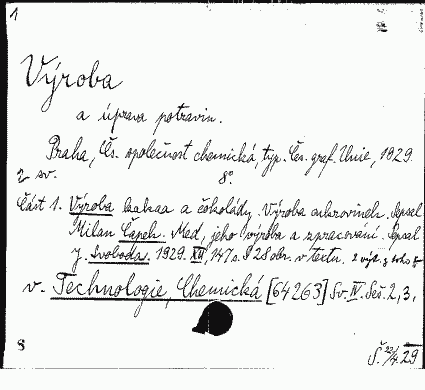 1
Výroba
a úprava potravin.
Praha, Čs. společnost chemická, typ. Čes. graf. Unie, 1929.
2 sv. 8°.
Část 1. Výroba kakaa a čokolády. Výroba cukrovinek. Sepsal
Milan Čapek. Med, jeho výroba a zpracování. Sepsal
J. Svoboda. 1929. XII, 147 s. S 28 obr. v textu.
v. Technologie, Chemická [64263] Sv. IV. Seš. 2, 3,
8